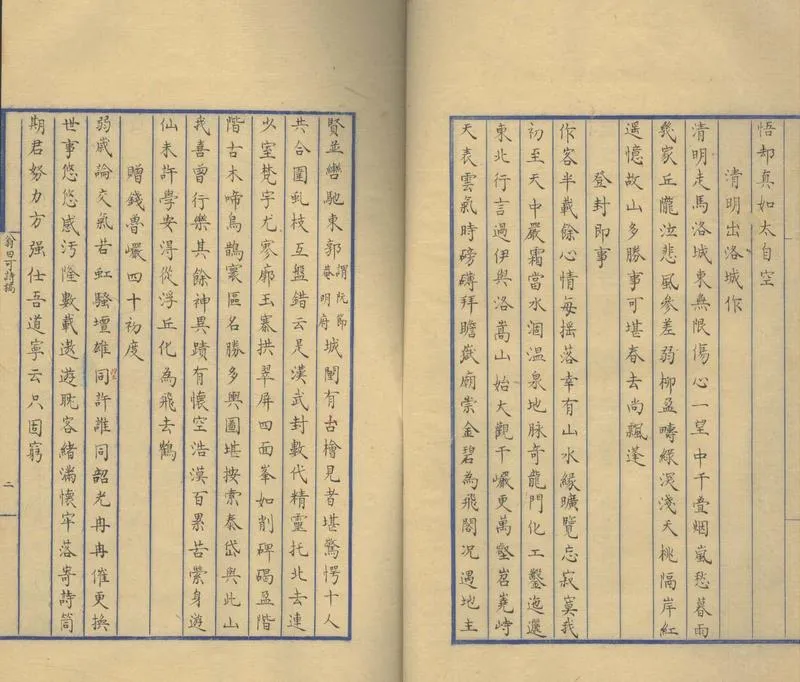 悟却真如太自空
清明出洛城作
清明走馬洛城東無限傷心一望中千叠烟嵐愁暮雨
幾家丘隴泣悲風參差弱柳盈疇綠深淺夭桃隔岸紅
遥憶故山多勝事可堪春去尚飄蓬
登封即事
作客半載餘心情每摇落幸有山水緣曠覽忘寂寞我
初至天中嚴霜當水涸温泉地脉奇龍門化工鑿迤邐
東北行言過伊與洛嵩山始大觀千巖更萬壑岧嶤峙
天表雲氣時磅礴拜瞻嶽廟崇金碧為飛閣况遇地主
賢並轡馳東郭
謂阮節
菴明府
城闉有古檜見者堪驚愕十人
共合圍虬枝互盤錯云是漢武封數代精靈托北去連
少室梵宇尤寥廓玉寨拱翠屏四面峯如削碑碣盈階
階古木啼鳥鵲寰區名勝多輿圖堪按索泰岱與此山
我喜曾行樂其餘神異蹟有懷空浩漠百累苦縈身遊
仙未許學安得從浮丘化為飛去鶴
贈錢魯巖四十初度
弱歲論交氣若虹騷壇雄同許誰同韶光冉冉催更换
世事悠悠感汚隆數載遨遊耽客緒滿懷牢落寄詩筒
期君努力方强仕吾道寧云只固窮
翁田可詩稿
二